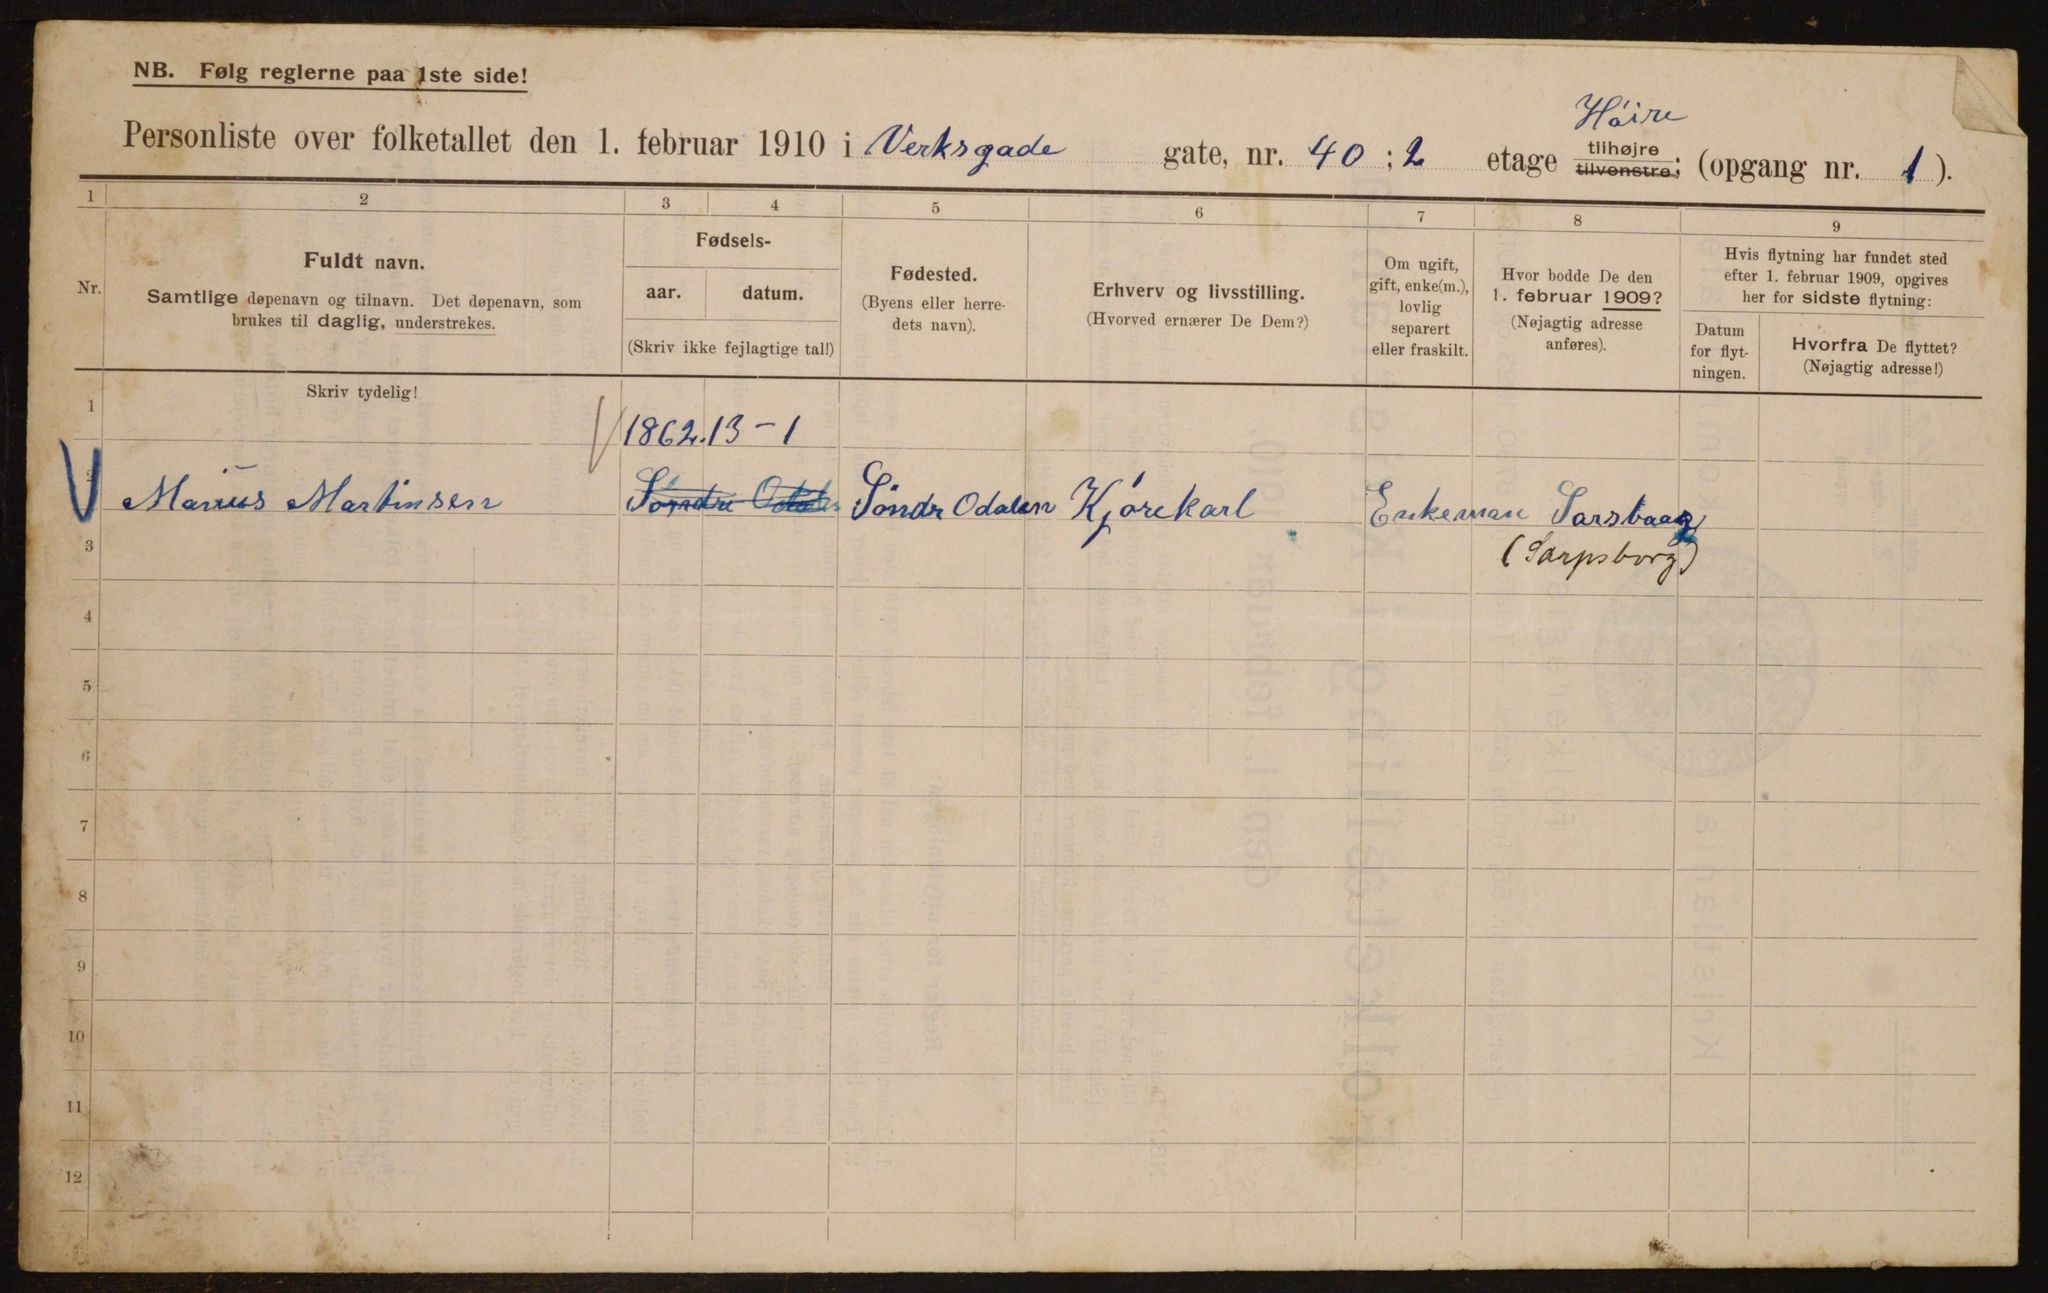 NB. Følg reglerne paa 1ste side!
Høire
Personliste over folketallet den 1. februar 1910 i Verksgade gate, nr. 40 ; 2 etage tilhøjre tilvenstre; (opgang nr. 1 ).
1 2 3 4 5 6 7 8 9
Nr.
Fuldt navn.
Samtlige døpenavn og tilnavn. Det døpenavn, som
brukes til daglig, understrekes.
Fødsels-
aar. datum.
(Skriv ikke fejlagtige tal!)
Fødested.
(Byens eller herre-
dets navn).
Erhverv og livsstilling.
(Hvorved ernærer De Dem?)
Om ugift,
gift, enke(m.),
lovlig
separert
eller fraskilt.
Hvor bodde De den
1. februar 1909?
(Nøjagtig adresse
anføres).
Hvis flytning har fundet sted
efter 1. februar 1909, opgives
her for sidste flytning:
Datum
for flyt-
ningen.
Hvorfra De flyttet?
(Nøjagtig adresse!)
Skriv tydelig!
1
1862. 13-1
2 Marius Martinsen Søndre Odalen Søndr Odalen Kjørekarl Enkeman Sarsbaag
3 (Sarpsborg)
4
5
6
7
8
9
10
11
12